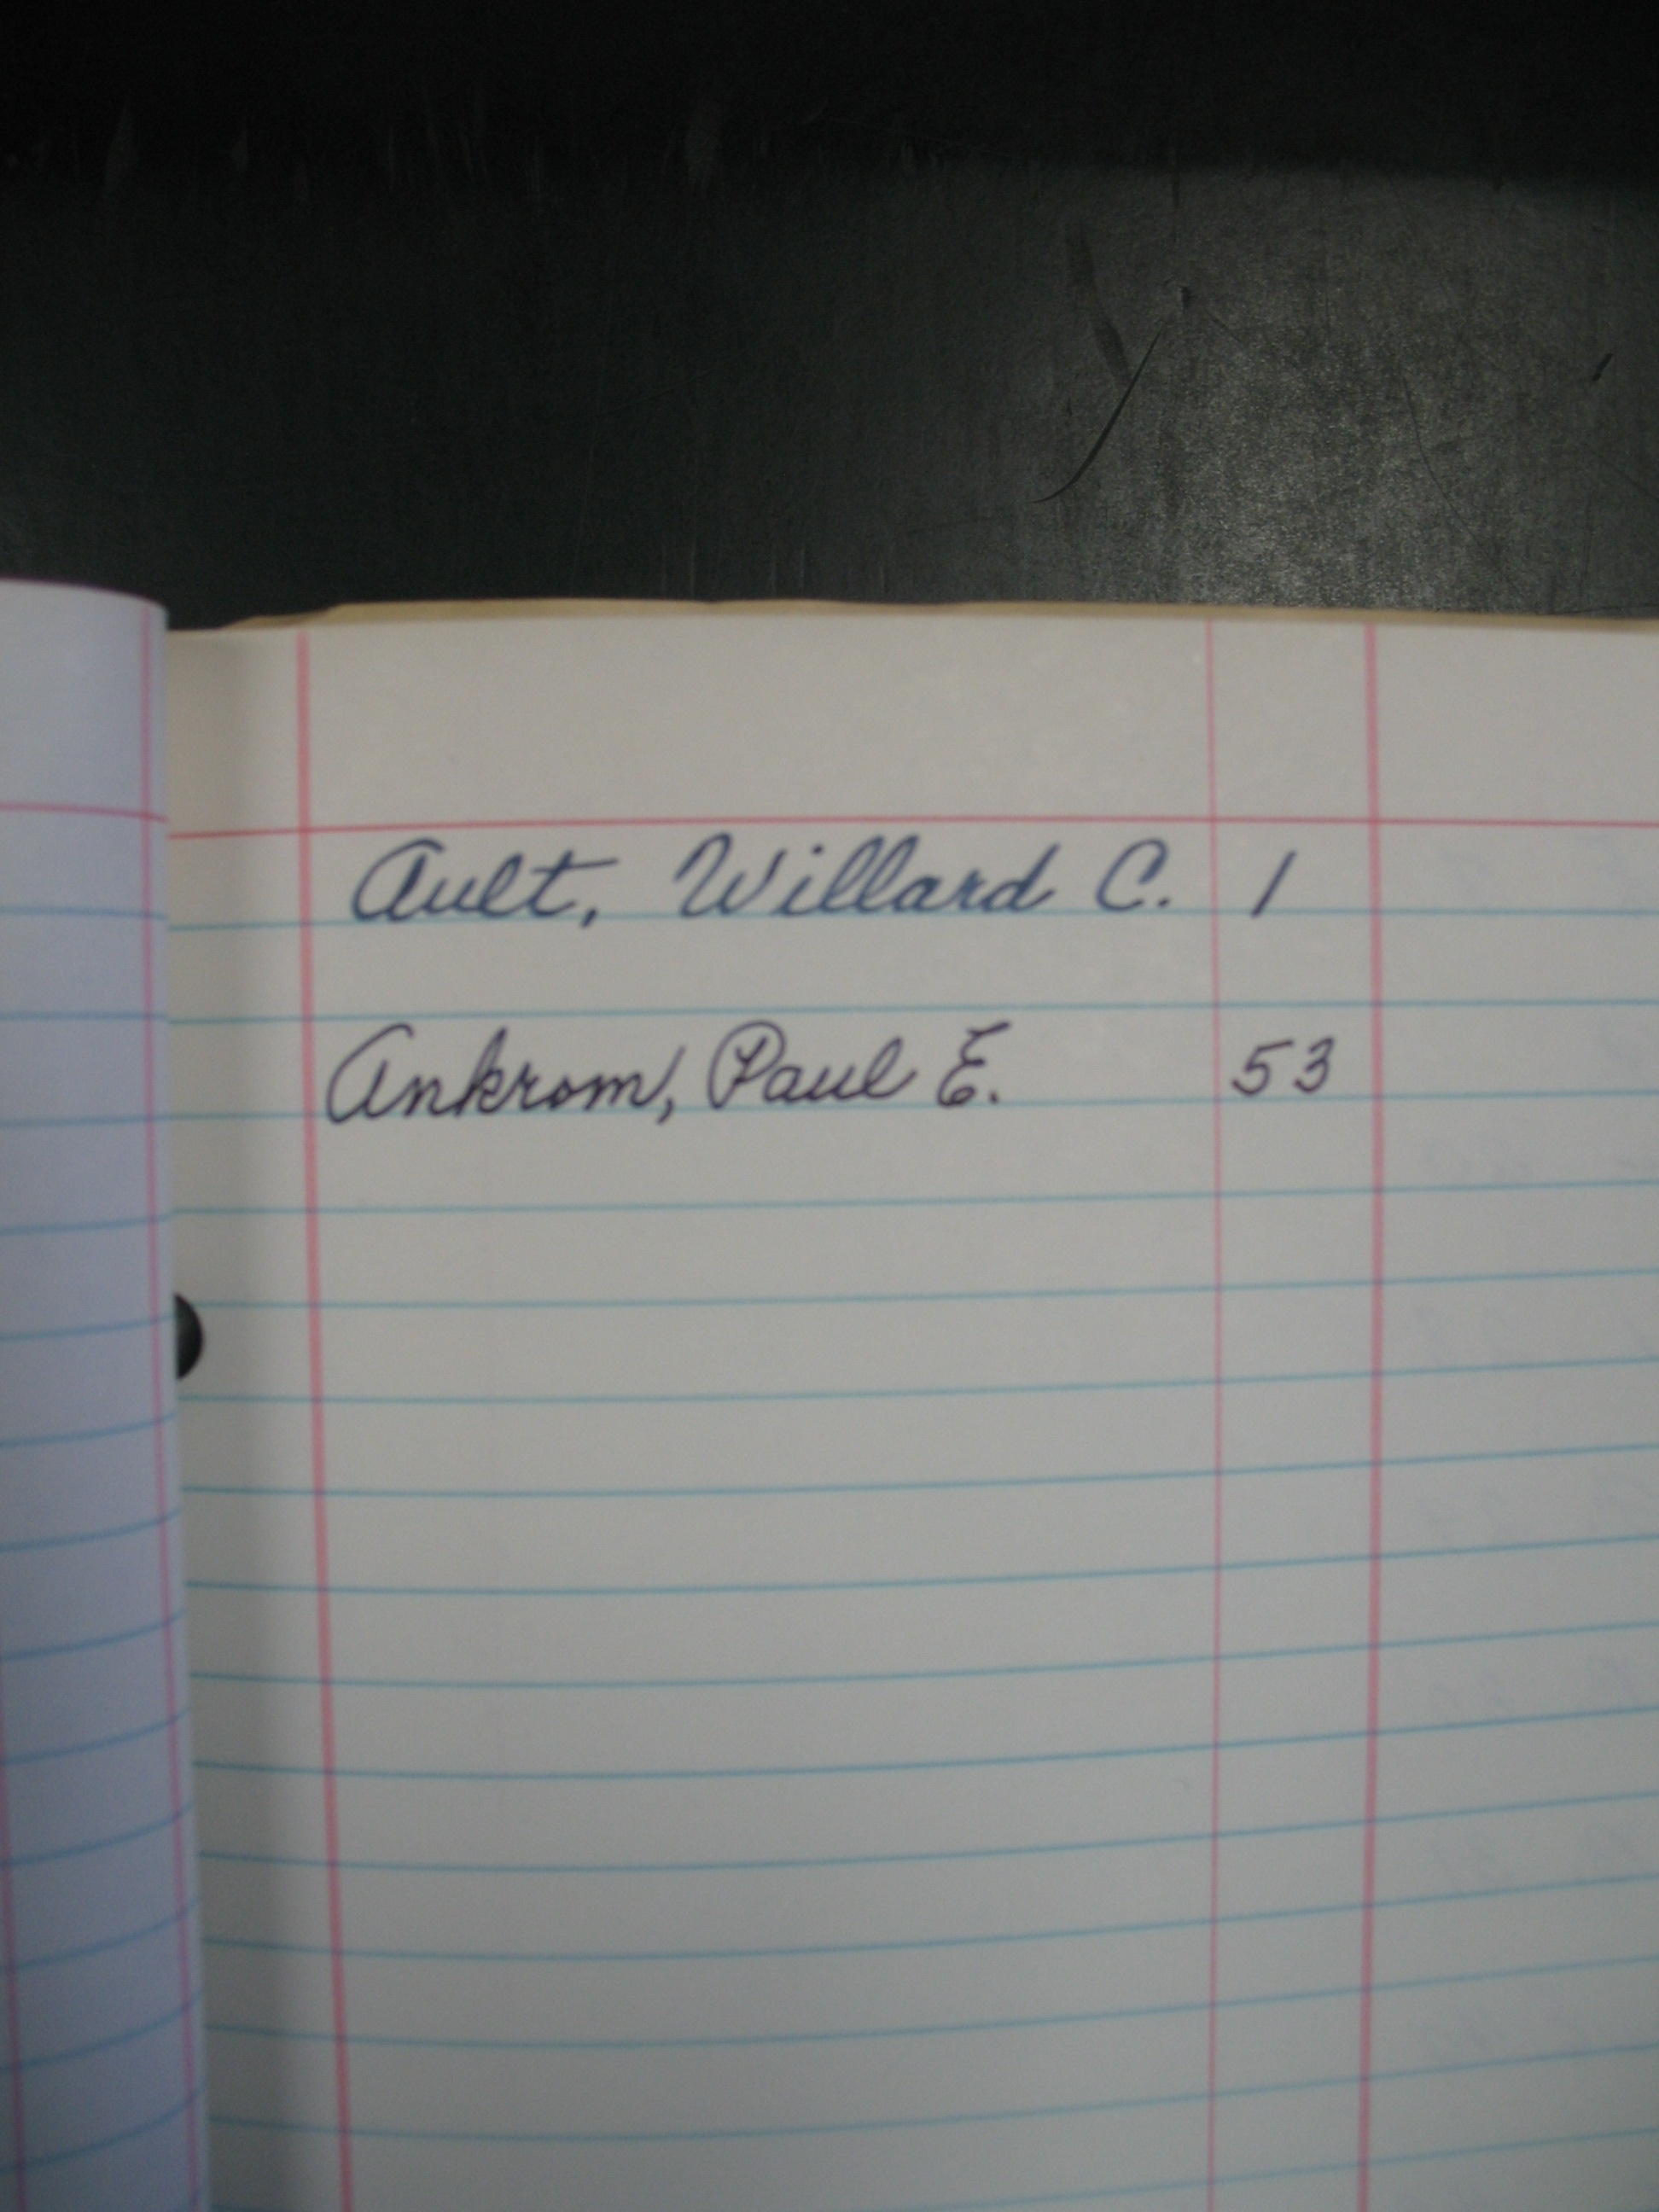 Ault, Willard C. 1
Ankrom, Paul E. 53